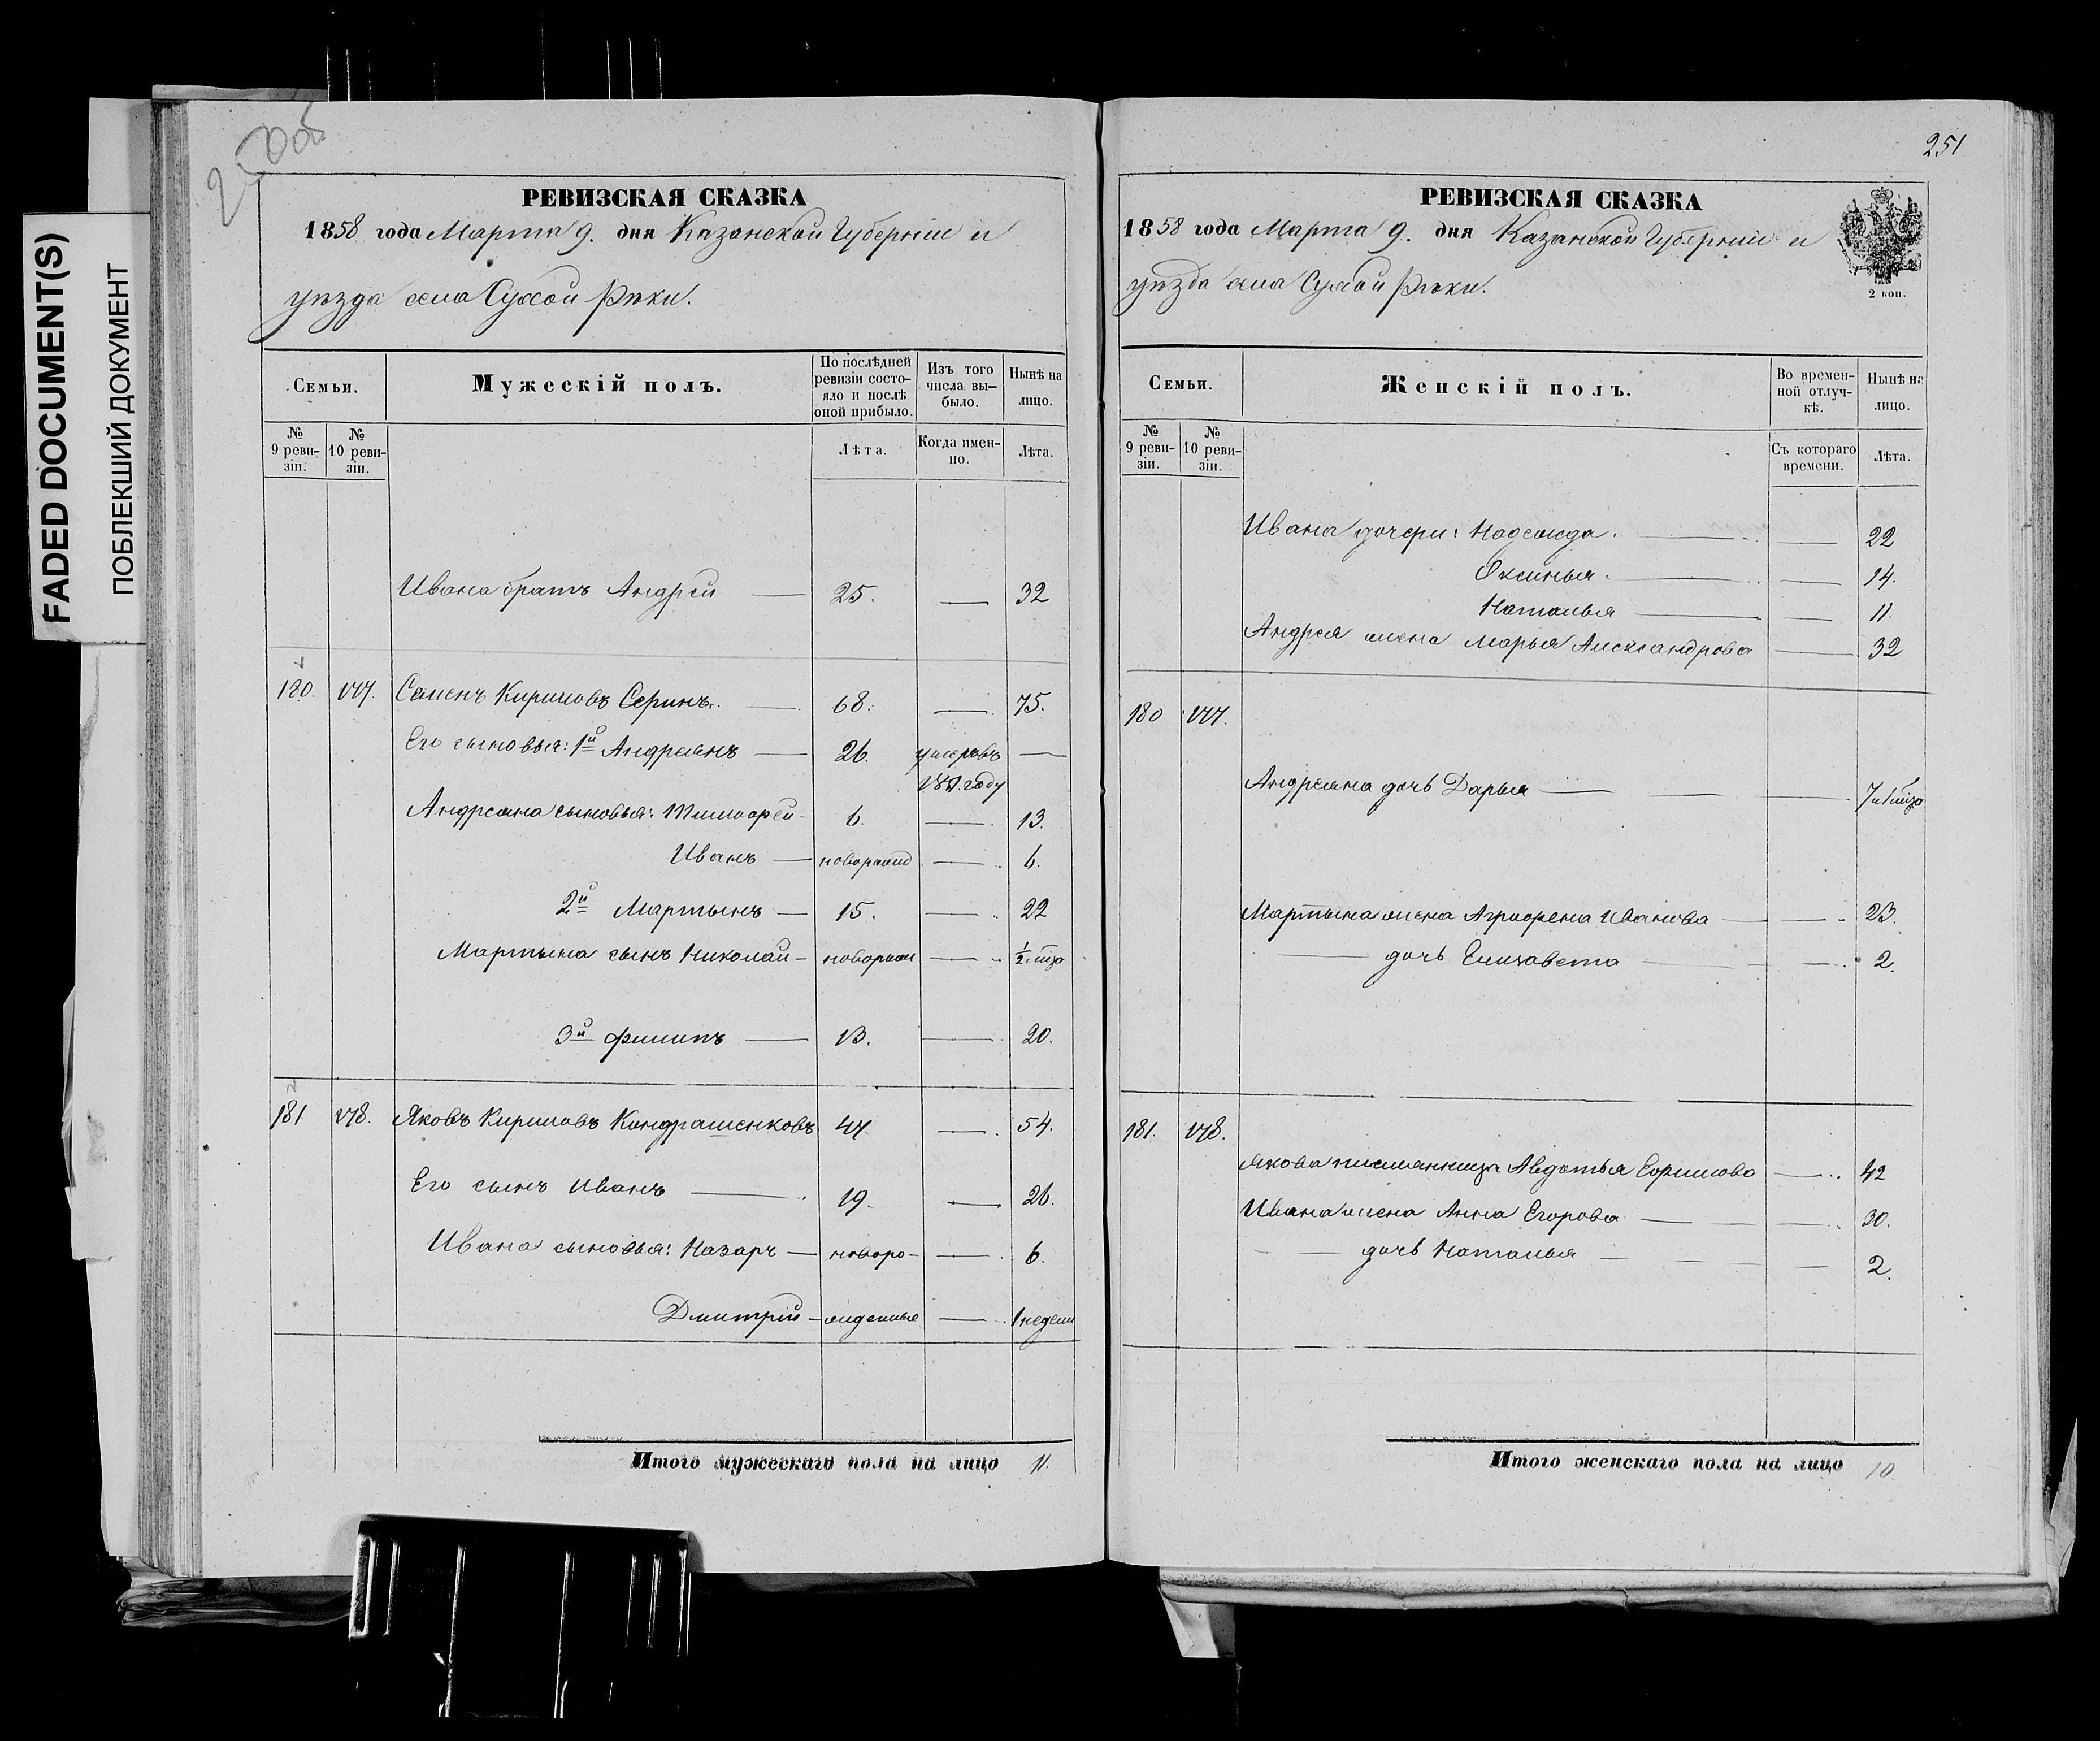 FADED DOCUMENT(S)
ПОБЛЕКШИЙ ДОКУМЕНТ
РЕВИЗСКАЯ СКАЗКА
1858 года Марта 9. дня Казанской Губерніи и
уѣзда села Сухой Рѣки.
Семьи.
Мужескій полъ.
По послѣдней ревизіи состояло и послѣ оной прибыло.
Изъ того числа выбыло.
Нынѣ на лицо.
№ 9 ревизіи.
№ 10 ревизіи.
Лѣта.
Когда именно.
Лѣта.
Ивана братъ Андрей 25. 32
180. 177. Семенъ Кириловъ Серинъ. 68. 75.
Его сыновья: 1й Андреянъ 26. умеръ въ
году
Андреяна сыновья: Тимофей 6. 13.
Иванъ новорожд 6.
2й Мартынъ 15. 22
Мартына сынъ Николай новорож 1/2 года
3й Филипъ 13. 20.
181 178. Яковъ Кириловъ Кондрашенковъ 47. 54.
Его сынъ Иванъ 19. 26.
Ивана сыновья: Назаръ новоро- 6.
Дмитрій жденные 1 недели
Итого мужескаго пола на лицо 11.
251
РЕВИЗСКАЯ СКАЗКА
1858 года Марта 9. дня Казанской Губерніи и
уѣзда села Сухой Рѣки.
2 коп.
Семьи.
Женскій полъ.
Во временной отлучкѣ.
Нынѣ на лицо.
№ 9 ревизіи.
№ 10 ревизіи.
Съ котораго времени.
Лѣта.
Ивана дочери: Надежда. 22
Оксинья. 14.
Наталья 11.
Андрея жена Марья Александрова 32
180 177.
Андреяна дочь Дарья
Мартына жена Аграфена Иванова 23.
дочь Елизавета 2.
181. 178.
Якова Авдотья 42
Ивана жена Анна Егорова 30.
дочь Наталья 2.
Итого женскаго пола на лицо 10.